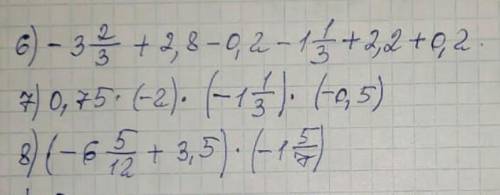 6) - 3 2/3 + 2,8 - 0,2 - 1 1/3 + 2,2 + 0,2.
7) 0,75 · (-2) · (-1 1/3) · (-0,5)
8) (-6 5/12 + 3,5) · (-1 5/7)